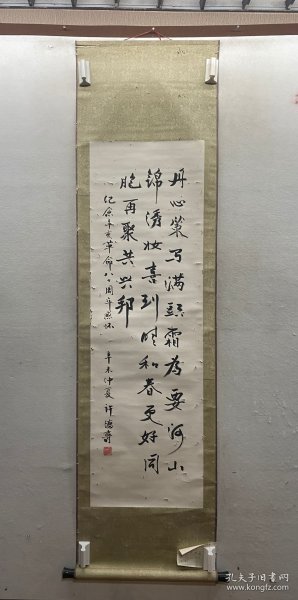 丹心策马满头霜为要河山
锦绣妆喜到时和春更好同
胞再聚共兴邦
纪念辛亥革命八十周年感怀
辛未仲夏 许德
孔夫子旧书网
www.kongfz.com